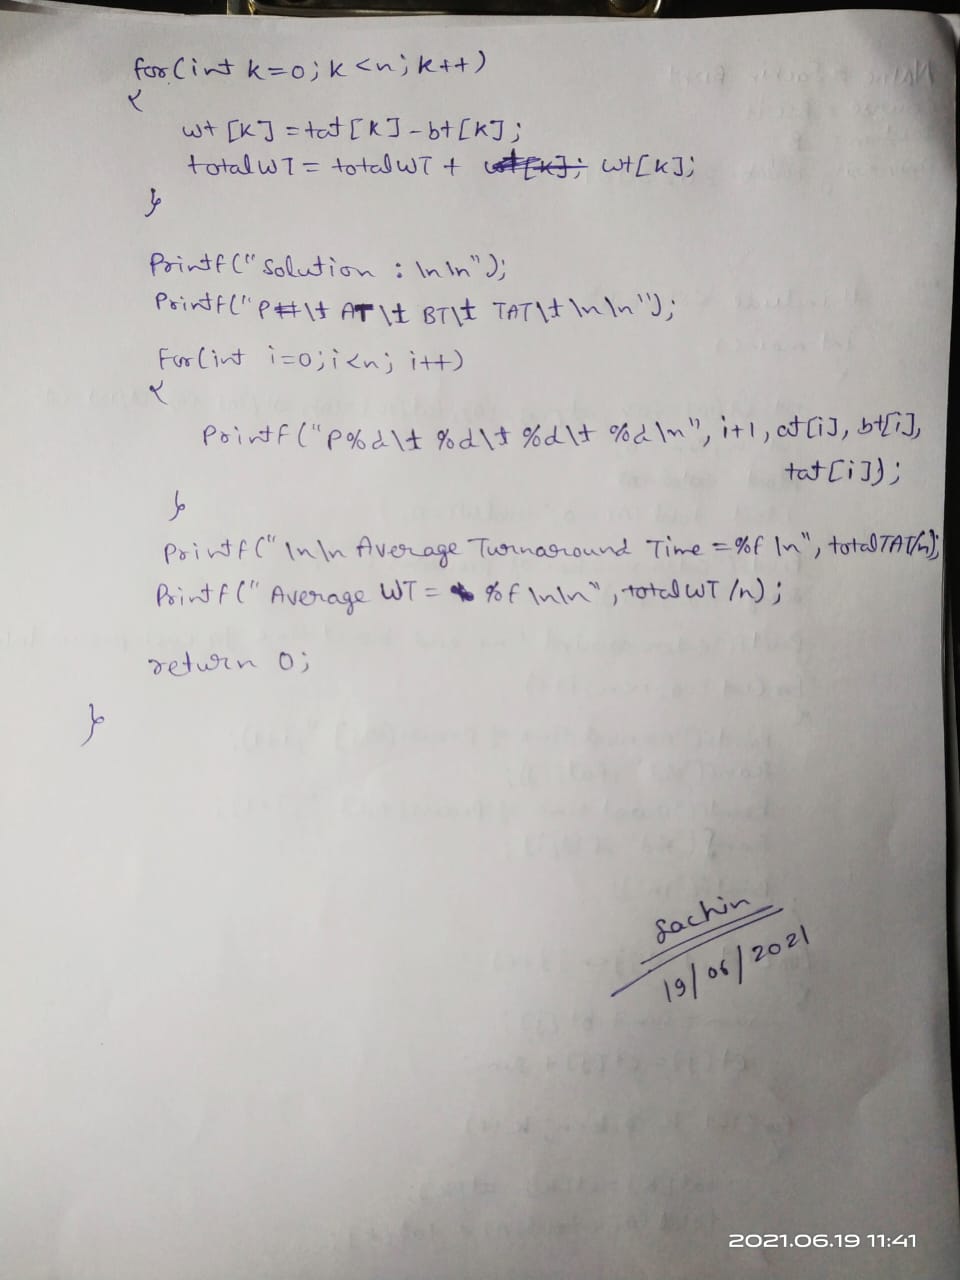 for(int k=0; k<n; k++)
{
wt[k] = tat[k] - bt[k];
totalWT = totalWT + wt[k]; wt[k];
}
Printf("Solution : \n\n");
Printf("P#\t AT\t BT\t TAT\t\n\n");
For(int i=0; i<n; i++)
{
Printf("P%d\t %d\t %d\t %d\n", i+1, at[i], bt[i],
tat[i]);
}
Printf("\n\n Average Turnaround Time = %f \n", totalTAT/n);
Printf("Average WT = %f \n\n", totalWT/n);
return 0;
}
Sachin
19/06/2021
2021.06.19 11:41